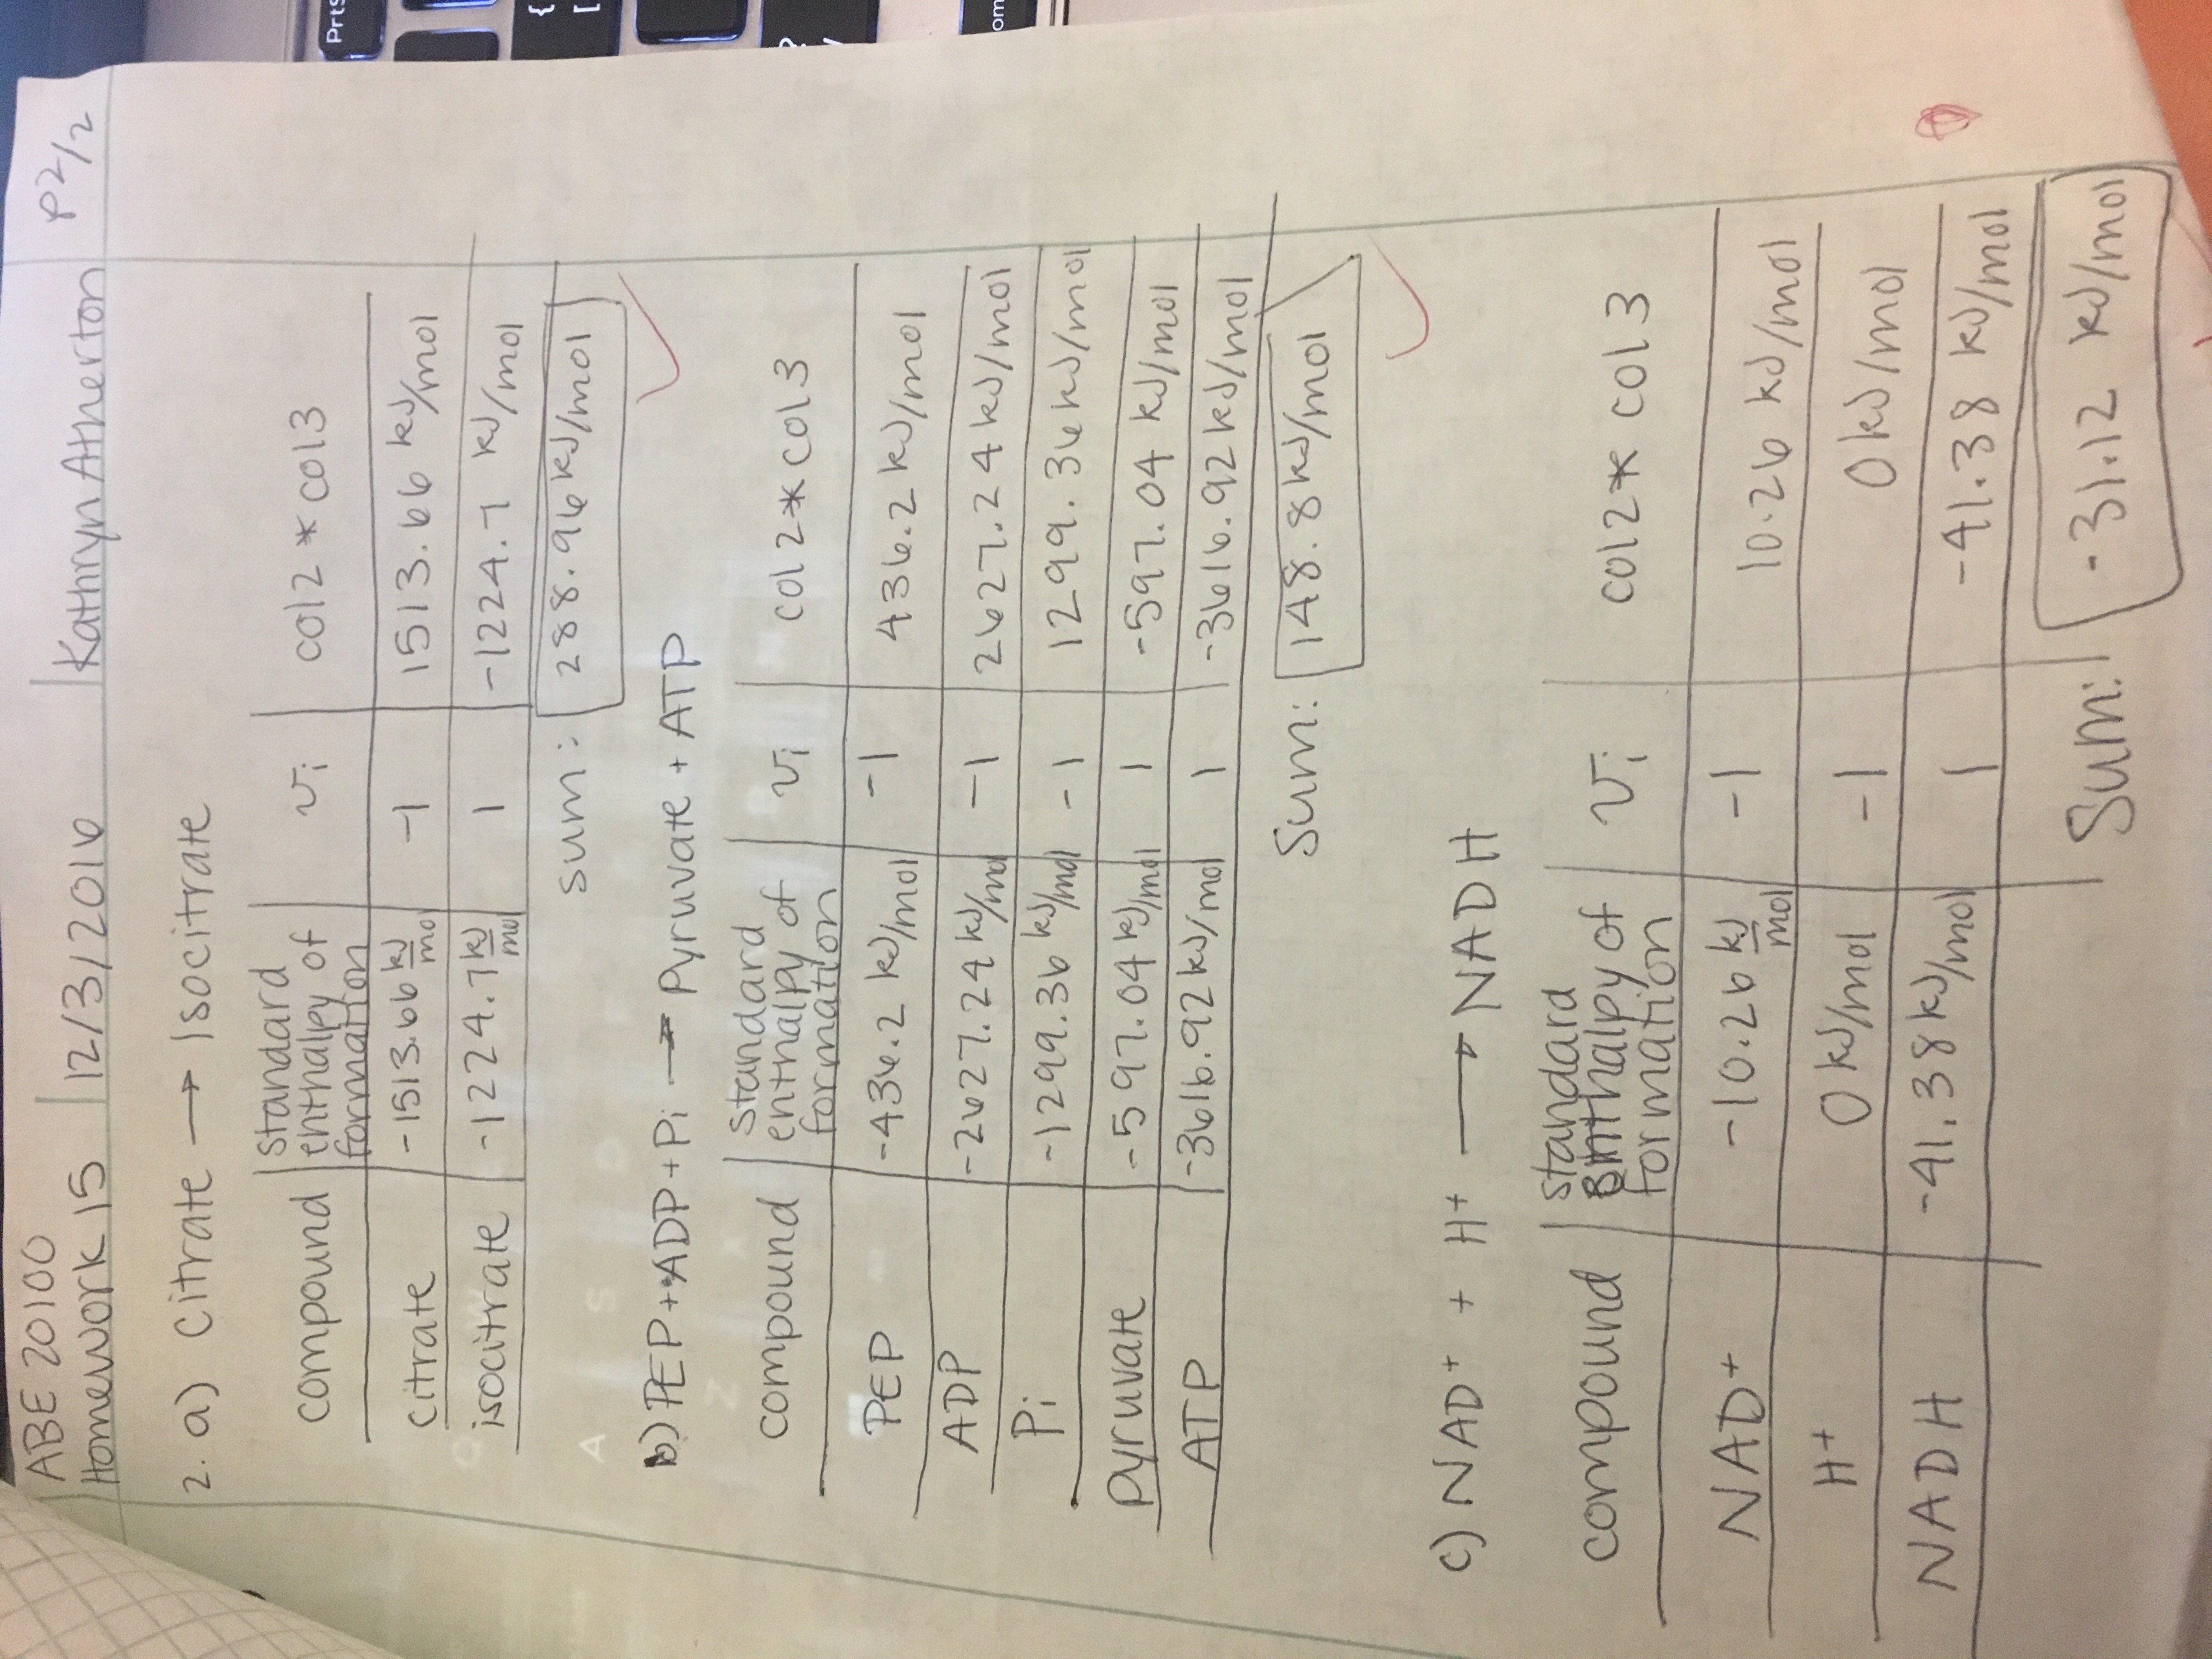 ABE 20100
Homework 15 12/3/2016 Kathryn Atherton P2/2
2. a) Citrate → Isocitrate
compound standard enthalpy of formation νi col2 * col3
citrate -1513.66 kJ/mol -1 1513.66 kJ/mol
isocitrate -1224.7 kJ/mol 1 -1224.7 kJ/mol
sum: 288.96 kJ/mol
b) PEP + ADP + Pi → Pyruvate + ATP
compound standard enthalpy of formation νi col2 * col3
PEP -436.2 kJ/mol -1 436.2 kJ/mol
ADP -2627.24 kJ/mol -1 2627.24 kJ/mol
Pi -1299.36 kJ/mol -1 1299.36 kJ/mol
pyruvate -597.04 kJ/mol 1 -597.04 kJ/mol
ATP -3616.92 kJ/mol 1 -3616.92 kJ/mol
Sum: 148.8 kJ/mol
c) NAD+ + H+ → NADH
compound standard enthalpy of formation νi col2 * col3
NAD+ -10.26 kJ/mol -1 10.26 kJ/mol
H+ 0 kJ/mol -1 0 kJ/mol
NADH -41.38 kJ/mol 1 -41.38 kJ/mol
Sum: -31.12 kJ/mol
PrtS
{
[
?
/
om
A S
Z X